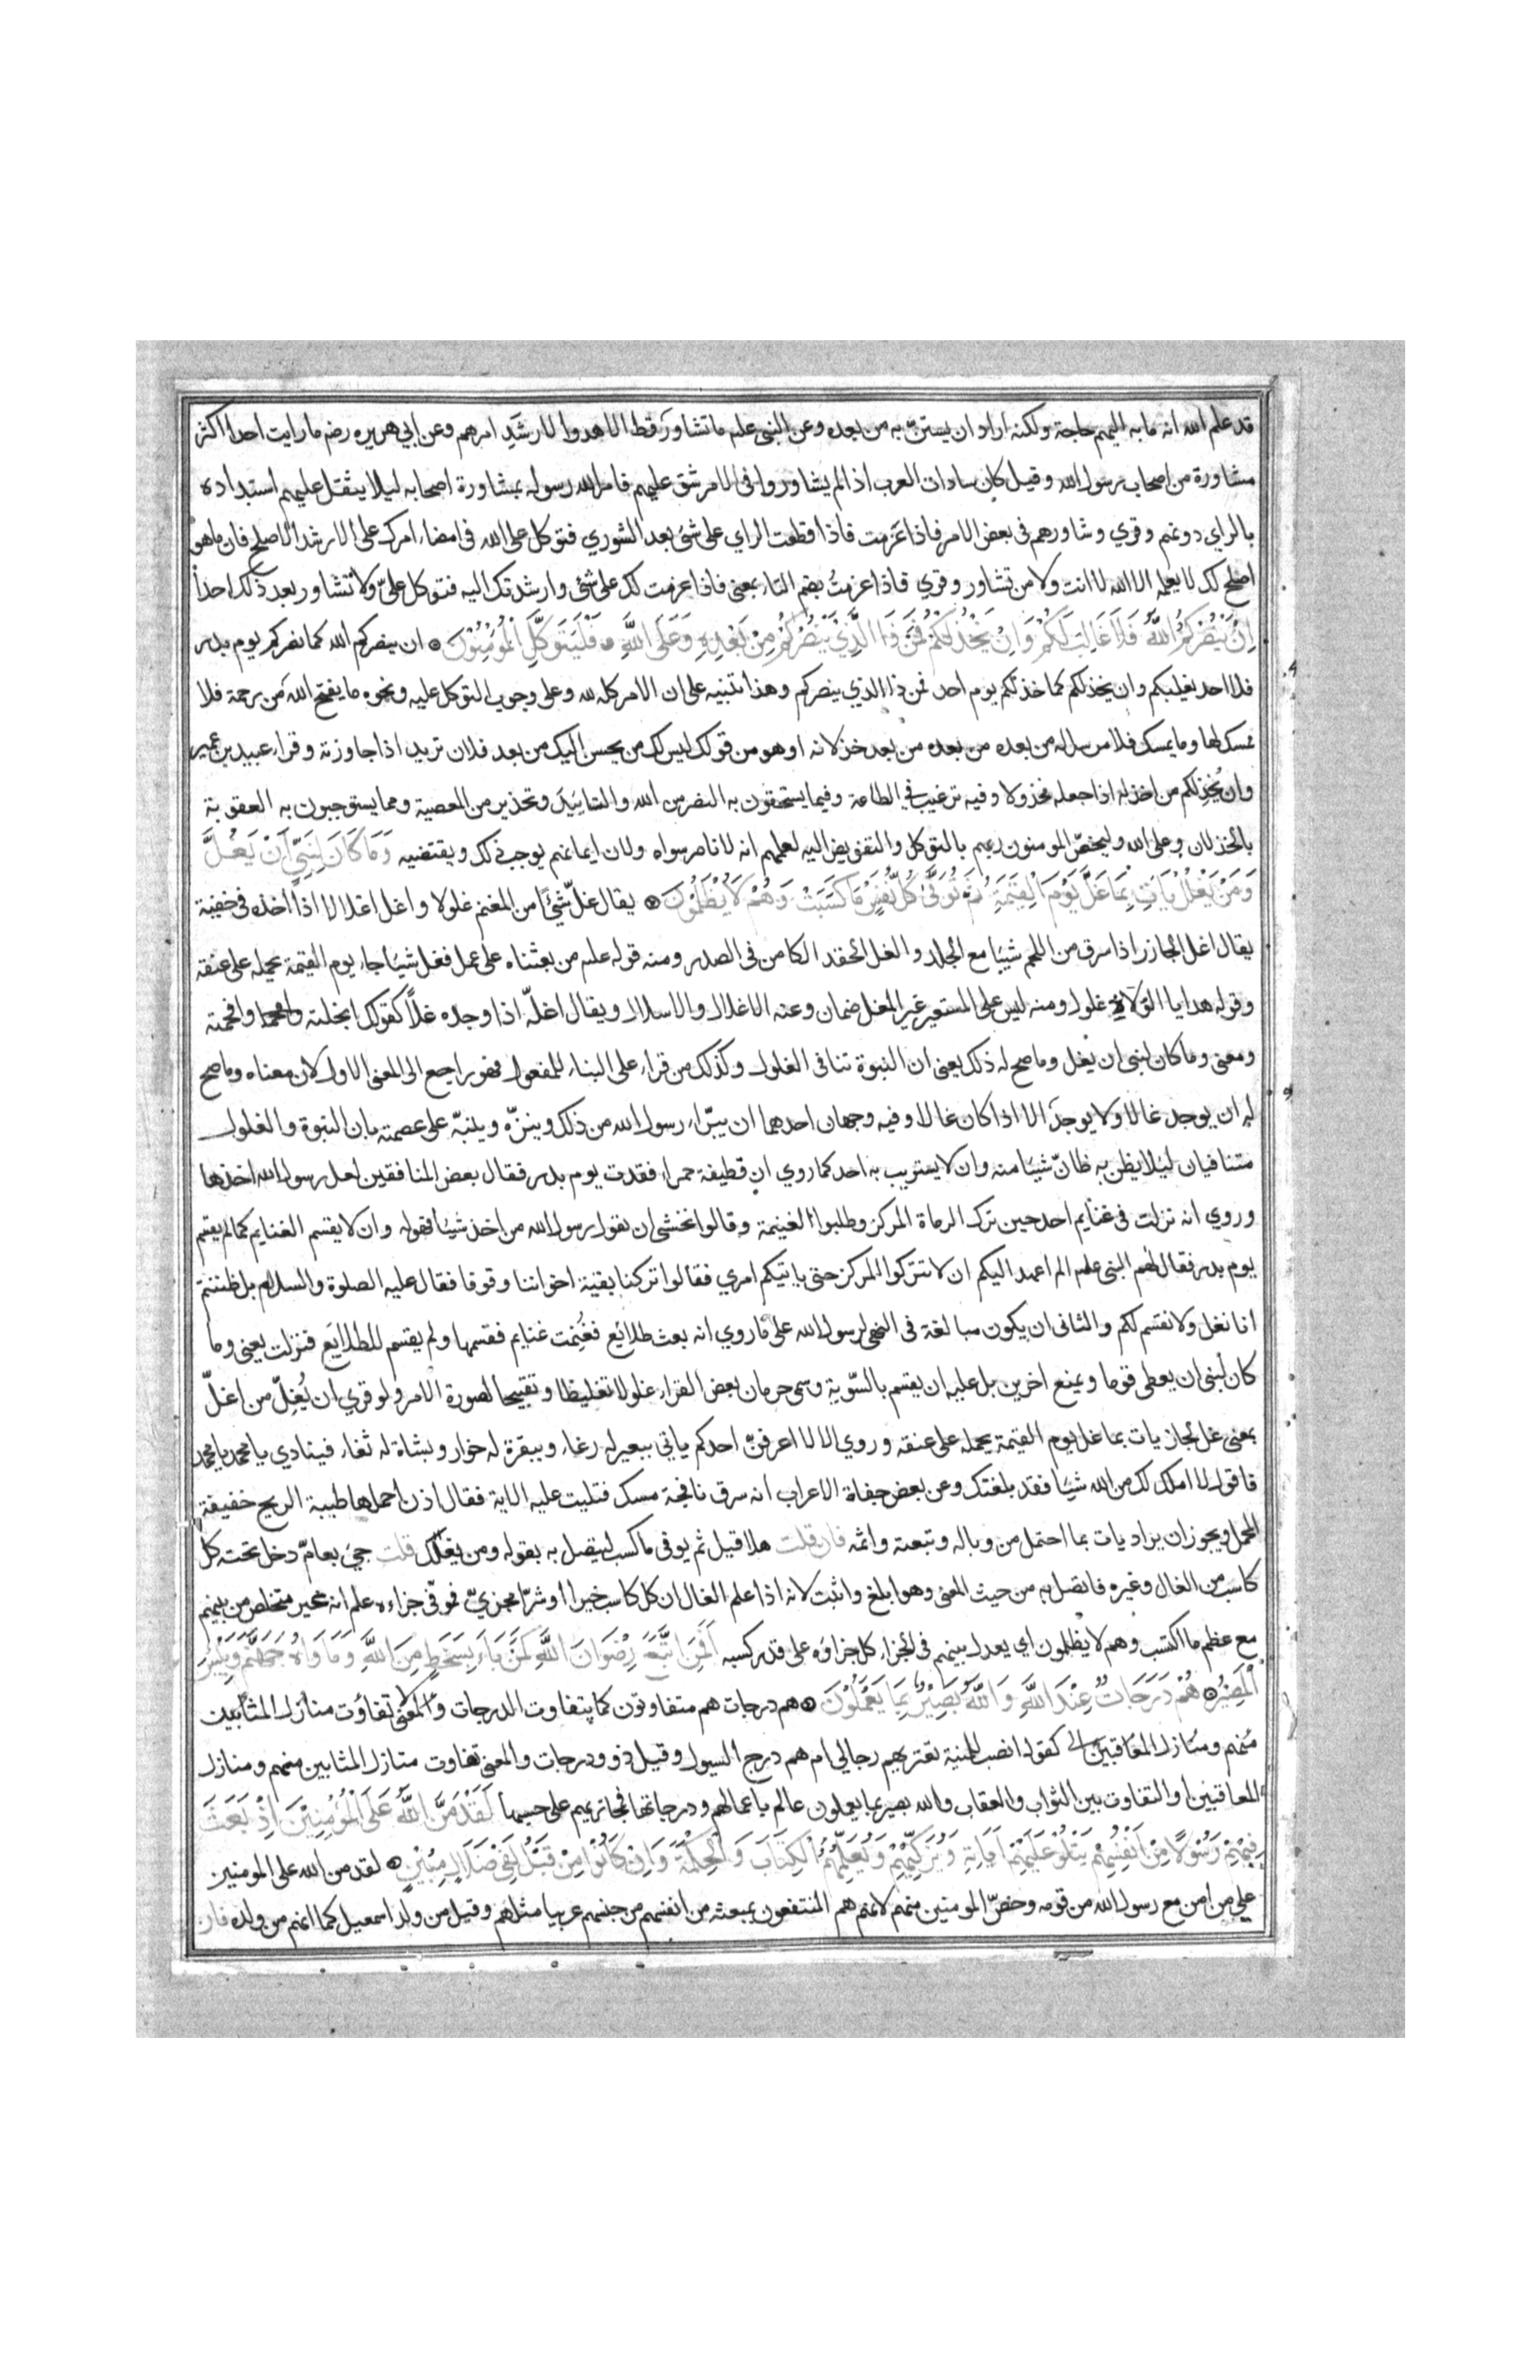 قد علم الله انه ما به اليهم حاجة ولكنه اراد ان يستنّ به من بعده وعن النبي علم ما تشاور قط الا هدوا لارشد امرهم وعن ابي هريره رضه ما رايت احدا اكثر
مشاورة من اصحاب رسول الله وقيل كان سادات العرب اذا لم يشاوروا في الامر شق عليهم فامر الله رسوله بمشاورة اصحابه ليلا يثقل عليهم استبداده
بالراي دونهم وقري وشاورهم في بعض الامر فاذا عزمت فاذا قطعت الراي على شئ بعد الشوري فتوكل على الله في امضاء امرك على الارشد الاصلح فان ما هو
اصلح لك لا يعلمه الا الله لا انت ولا من تشاور وقري فاذا عزمتُ بضم التاء بمعنى فاذا عزمت لك على شئ وارشدتك اليه فتوكل علىّ ولا تشاور بعد ذلك احدا
اِنْ يَنْصُرْكُمُ اللّٰهُ فَلَا غَالِبَ لَكُمْ وَاِنْ يَخْذُلْكُمْ فَمَنْ ذَا الَّذِيْ يَنْصُرُكُمْ مِنْ بَعْدِهِ وَعَلَى اللّٰهِ فَلْيَتَوَكَّلِ الْمُؤْمِنُوْنَ ان ينصركم الله كما نصركم يوم بدر
فلا احد يغلبكم وان يخذلكم كما خذلكم يوم احد فمن ذا الذي ينصركم وهذا تنبيه على ان الامر كله لله وعلى وجوب التوكل عليه ونحوه ما يفتح الله من رحمة فلا
ممسك لها وما يمسك فلا مرسل له من بعده من بعده من بعد خذلانه او هو من قولك ليس لك من يحسن اليك من بعد فلان تريد اذا جاوزته وقراء عبيد بن عمير
وان يُخذِلكم من اخذله اذا جعله مخذولا وفيه ترغيب في الطاعة وفيما يستحقون به النصر من الله والتاييد وتحذير من المعصية ومما يستوجبون به العقوبة
بالخذلان وعلى الله وليخصّ المومنون ربهم بالتوكل والتفويض اليه لعلمهم انه لا ناصر سواه ولان ايمانهم يوجب ذلك ويقتضيه وَمَا كَانَ لِنَبِيٍّ اَنْ يَغُلَّ
وَمَنْ يَغْلُلْ يَاْتِ بِمَا غَلَّ يَوْمَ الْقِيٰمَةِ ثُمَّ تُوَفّٰى كُلُّ نَفْسٍ مَا كَسَبَتْ وَهُمْ لَا يُظْلَمُوْنَ يقال غلّ شيًا من المغنم غلولا واغل اغلالا اذا اخذه في خفية
يقال اغل الجازر اذا سرق من اللحم شيبا مع الجلد والغل الحقد الكامن في الصدر ومنه قوله علم من بعثناه على عمل فغل شيًا جاء يوم القيمة يحمله على عنقه
وقوله هدايا الولاة غلول ومنه ليس على المستعير غير المغل ضمان وعنه لا اغلال ولا اسلال ويقال اغلّه اذا وجده غلاً كقولك ابخلته وافحمته
ومعنى وما كان لنبي ان يغل وما صح له ذلك يعنى ان النبوة تنافي الغلول وكذلك من قراء على البناء للمفعول فهو راجع الى المعنى الاول لان معناه وما صح
له ان يوجد غالا ولا يوجد الا اذا كان غالا وفيه وجهان احدهما ان يبرّاء رسول الله من ذلك وينزّه وينبّه على عصمته بان النبوة والغلول
متنافيان ليلا يظن به ظانّ شيًا منه وان لا يستريب به احد كما روي ان قطيفة حمراء فقدت يوم بدر فقال بعض المنافقين لعل رسول الله اخذها
وروي انه نزلت في غنايم احد حين ترك الرماة المركز وطلبوا الغنيمة وقالوا نخشى ان يقول رسول الله من اخذ شيًا فهو له وان لا يقسم الغنايم كما لم يقسم
يوم بدر فقال لهم النبي علم الم اعهد اليكم ان لا تتركوا المركز حتى ياتيكم امري فقالوا تركنا بقية اخواننا وقوفا فقال عليه الصلوة والسلام بل ظننتم
انا نغل ولا نقسم لكم والثاني ان يكون مبالغة في النهي لرسول الله على ما روي انه بعث طلايع فغُنِمت غنايم فقسمها ولم يقسم للطلايع فنزلت يعني وما
كان لنبي ان يعطى قوما ويمنع اخرين بل عليه ان يقسم بالسّوية وسمى حرمان بعض الغزاء غلولا تغليظا وتقبيحا لصورة الامر ولو قري ان يُغِلّ من اغلّ
بمعنى غل لجاز يات بما غل يوم القيمة يحمله على عنقه وروي الا لا اعرفنّ احدكم ياتي ببعير له رغاء وببقرة له خوار وبشاة له ثغاء فينادي يا محمد يا محمد
فاقول لا املك لك من الله شيًا فقد بلغتك وعن بعض جفاة الاعراب انه سرق نافجة مسك فتليت عليه الاية فقال اذن احملها طيبة الريح خفيفة
المحمل ويجوز ان يراد يات بما احتمل من وباله وتبعته واثمه فان قلت هلا قيل ثم يوفى ما كسب ليتصل به بقوله ومن يغلل قلت جئ بعامّ دخل تحته كل
كاسب من الغال وغيره فاتصل به من حيث المعنى وهو ابلغ واثبت لانه اذا علم الغال ان كل كاسب خيرا او شرّا مجزيّ فموفّى جزاءه علم انه غير متخلص من بينهم
مع عظم ما اكتسب وهم لا يظلمون اي يعدل بينهم في الجزاء كل جزاؤه على قدر كسبه اَفَمَنِ اتَّبَعَ رِضْوَانَ اللّٰهِ كَمَنْ بَاءَ بِسَخَطٍ مِنَ اللّٰهِ وَمَاْوَاهُ جَهَنَّمُ وَبِئْسَ
الْمَصِيْرُ هُمْ دَرَجَاتٌ عِنْدَ اللّٰهِ وَاللّٰهُ بَصِيْرٌ بِمَا يَعْمَلُوْنَ هم درجات هم متفاوتون كما يتفاوت الدرجات والمعنى تفاوت منازل المثابين
منهم ومنازل المعاقبين كقوله انصب للمنية تعتريهم رجالي ام هم درج السيول وقيل ذوو درجات والمعنى تفاوت منازل المثابين منهم ومنازل
المعاقبين او التفاوت بين الثواب والعقاب والله بصير بما يعملون عالم باعمالهم ودرجاتها فمجازيهم على حسبها لَقَدْ مَنَّ اللّٰهُ عَلَى الْمُؤْمِنِيْنَ اِذْ بَعَثَ
فِيْهِمْ رَسُوْلًا مِنْ اَنْفُسِهِمْ يَتْلُوْ عَلَيْهِمْ اٰيَاتِهِ وَيُزَكِّيْهِمْ وَيُعَلِّمُهُمُ الْكِتَابَ وَالْحِكْمَةَ وَاِنْ كَانُوْا مِنْ قَبْلُ لَفِيْ ضَلَالٍ مُبِيْنٍ لقد من الله على المومنين
على من امن مع رسول الله من قومه وخصّ المومنين منهم لانهم هم المنتفعون بمبعثه من انفسهم من جنسهم عربيا مثلهم وقيل من ولد اسمعيل كما انهم من ولده فان